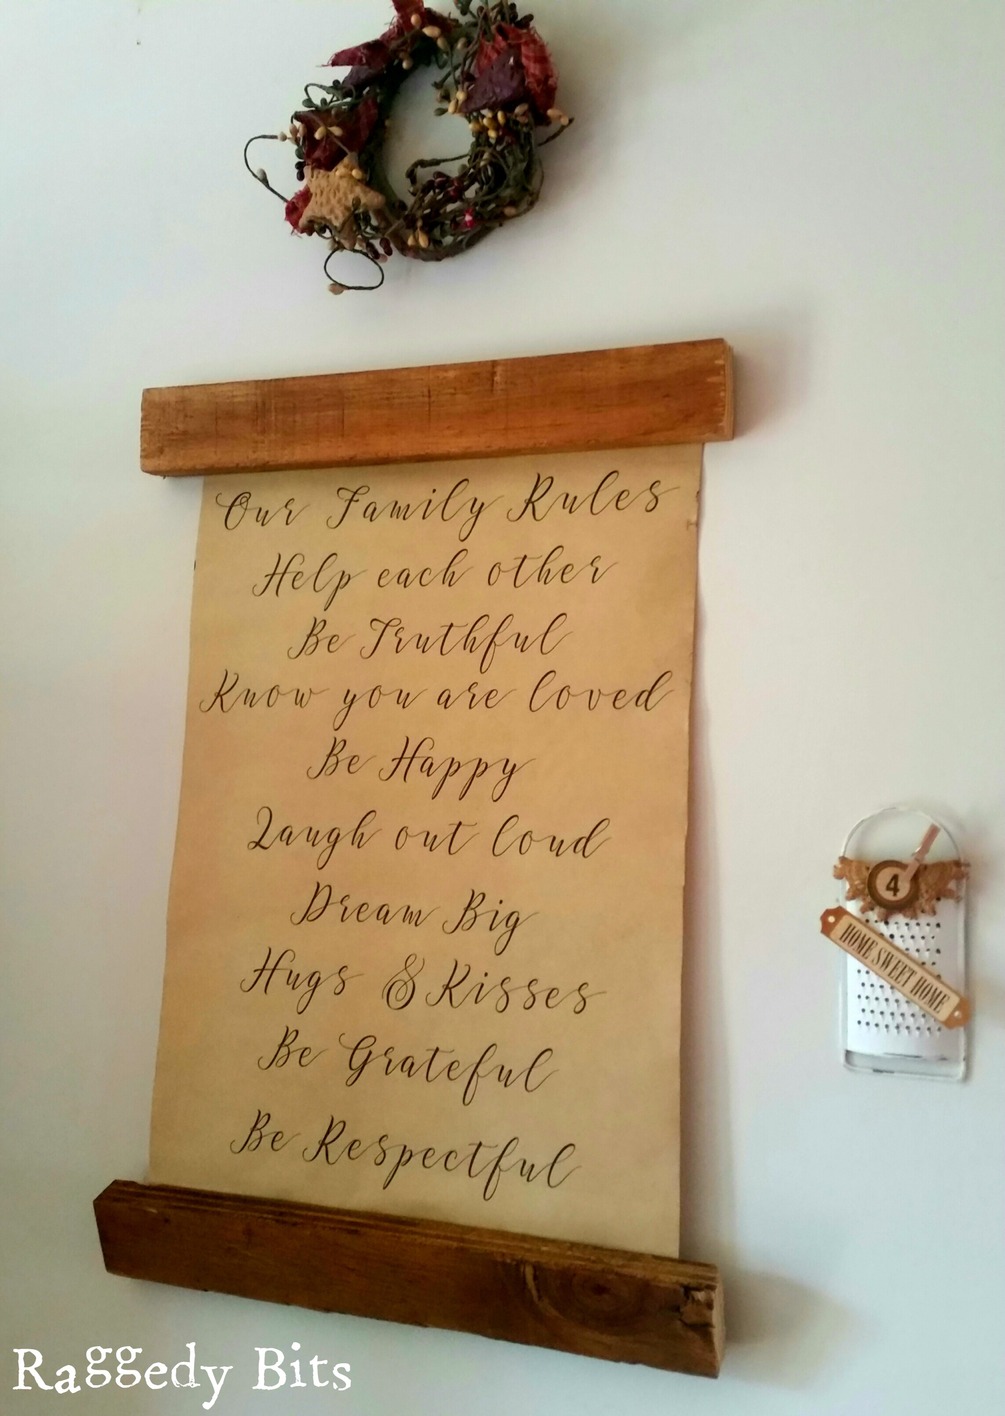 Our Family Rules
Help each other
Be Truthful
Know you are loved
Be Happy
Laugh out loud
Dream Big
Hugs & Kisses
Be Grateful
Be Respectful
4
HOME SWEET HOME
Raggedy Bits